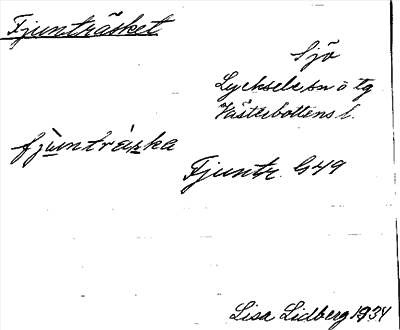 Fjunträsket
Sjö
Lycksele sn o tg
Västerbottens l.
fjùntráska
Fjuntr. G49
Lisa Lidberg 1934